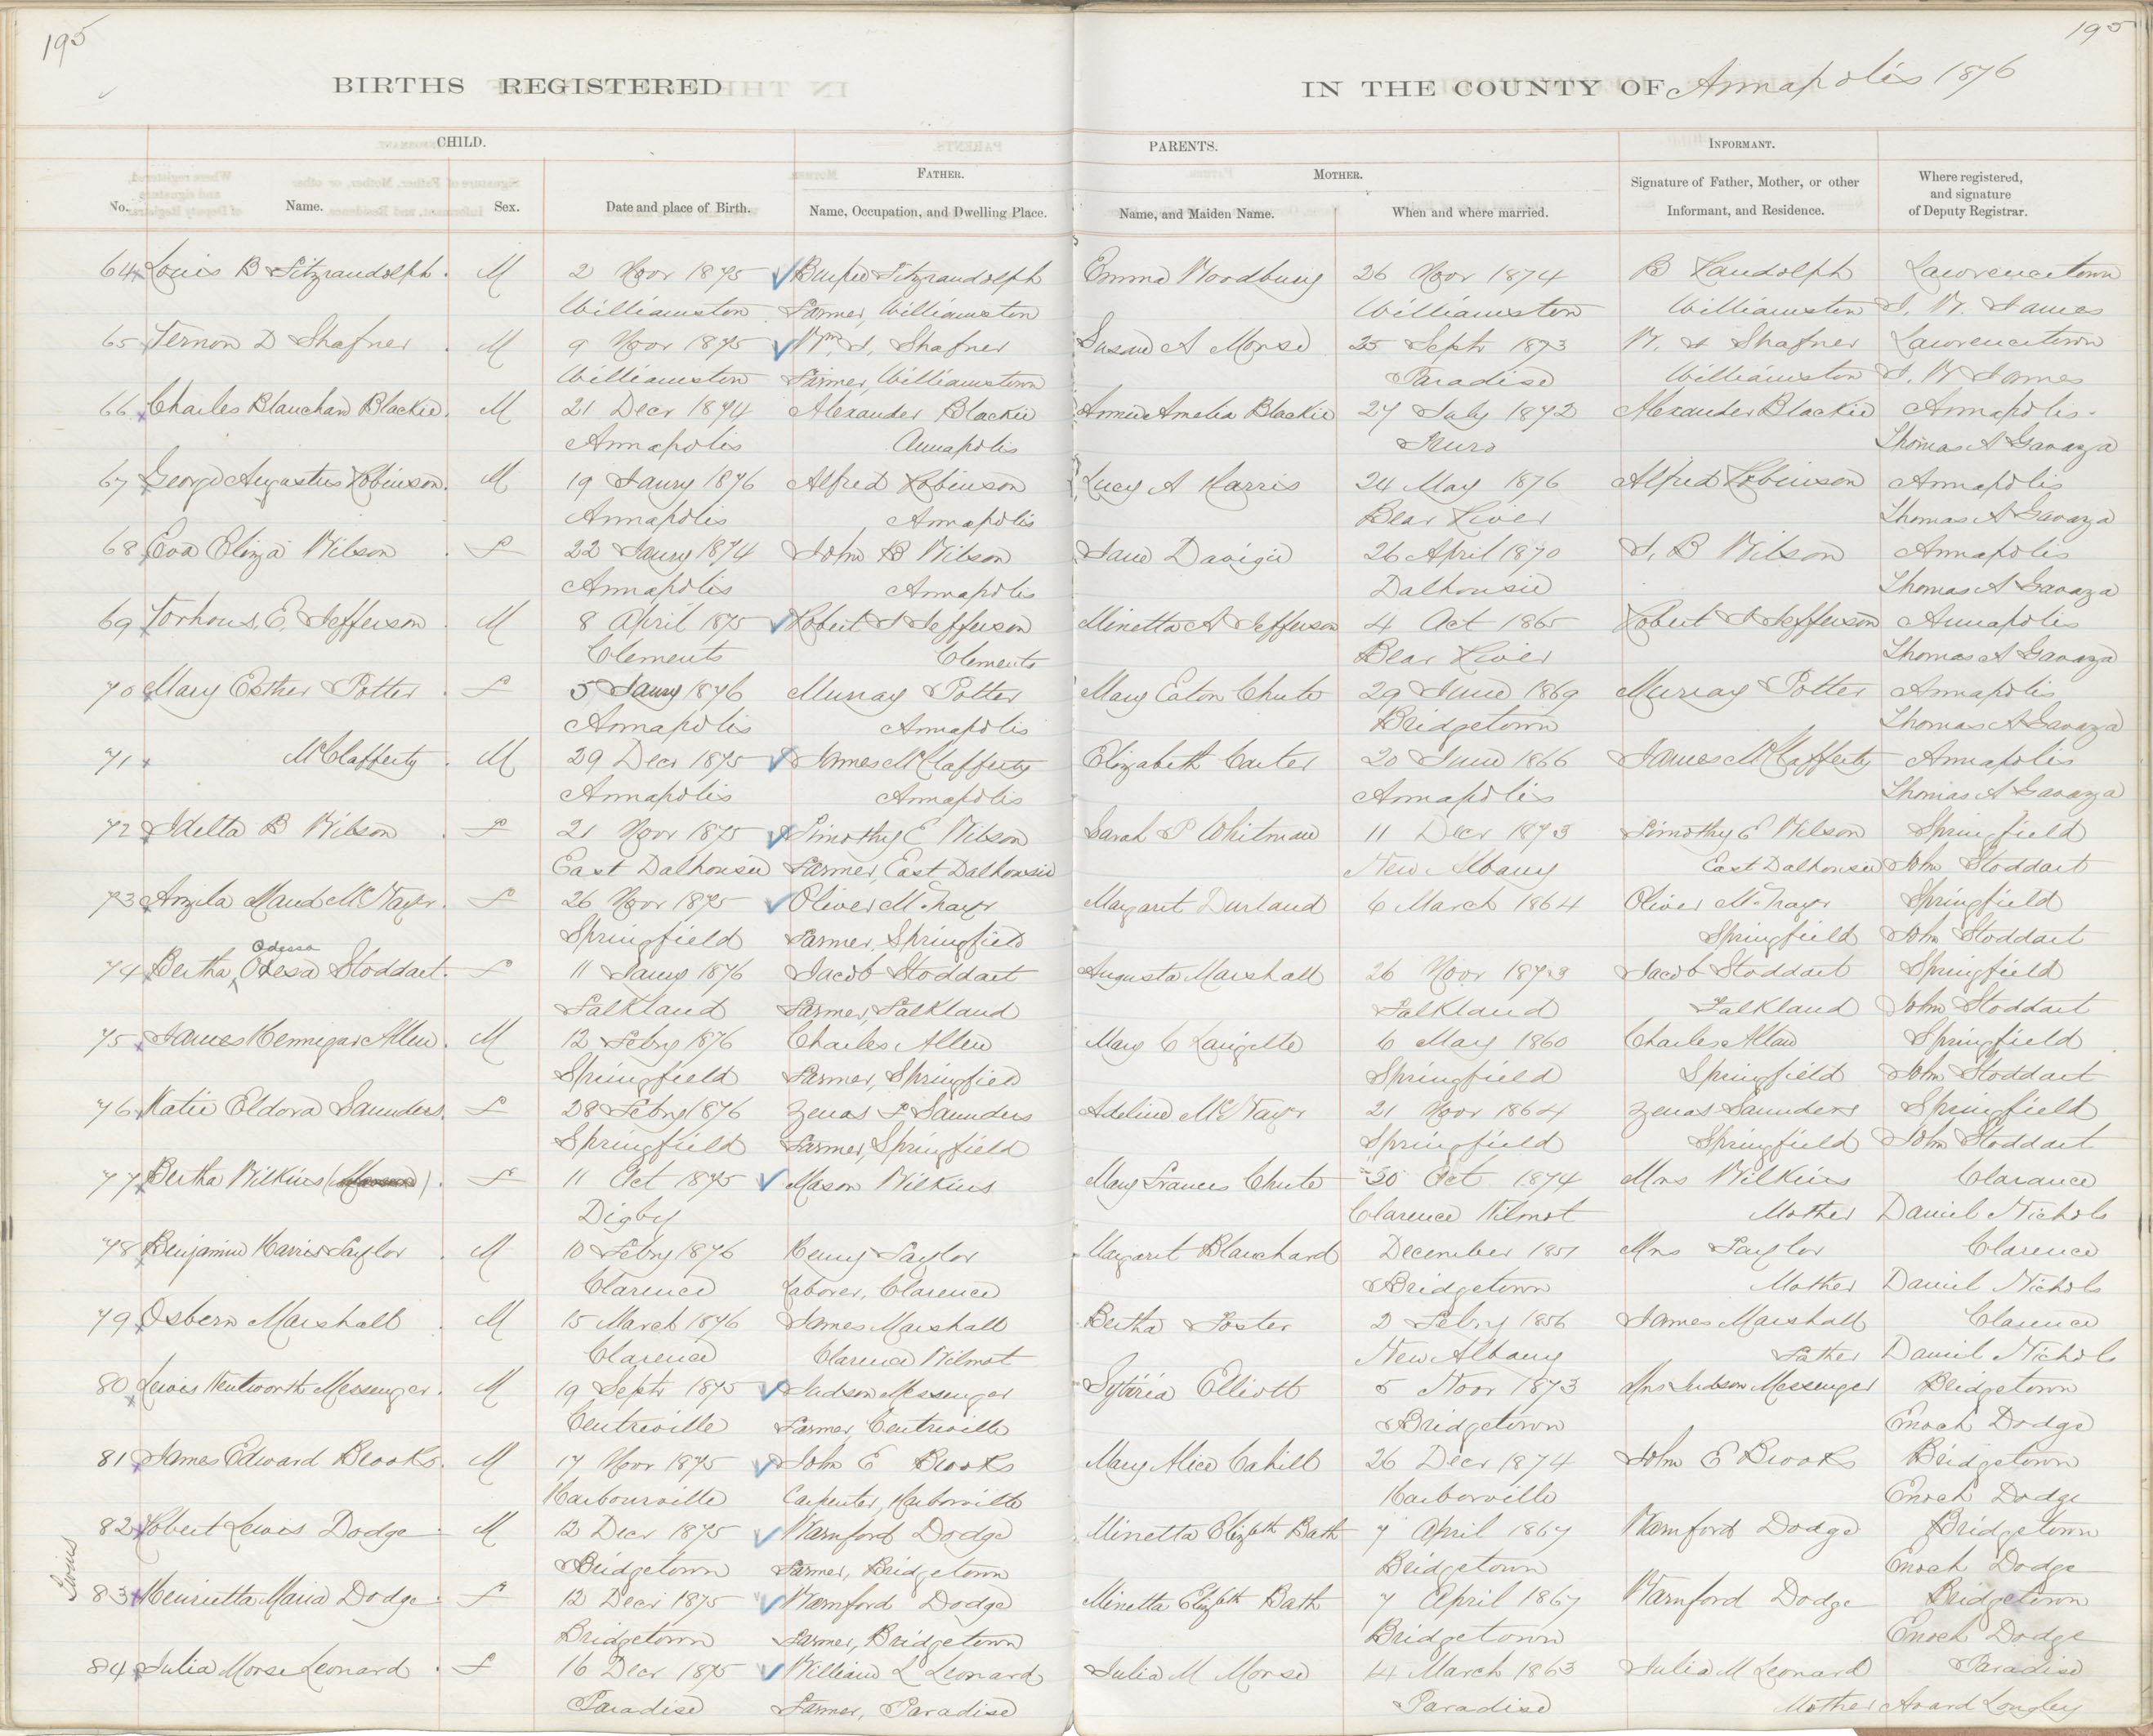 195
195
BIRTHS REGISTERED IN THE COUNTY OF Annapolis 1876
CHILD. PARENTS. INFORMANT.
FATHER. MOTHER.
No. Name. Sex. Date and place of Birth. Name, Occupation, and Dwelling Place. Name, and Maiden Name. When and where married. Signature of Father, Mother, or other Informant, and Residence. Where registered, and signature of Deputy Registrar.
64 Louis B Fitzrandolph. M 2 Novr 1875 Fitzrandolph Emma Woodbury 26 Novr 1874 B Randolph Lawrencetown
Williamston Farmer, Williamston Williamston Williamston J. W. James
65 Vernon D Shafner. M 9 Novr 1875 Wm. J. Shafner Susan A Morse 25 Septr 1873 W. J Shafner Lawrencetown
Williamston Farmer, Williamstown Paradise Williamston J. W James
66 Charles Blanchard Blackie. M 21 Decr 1874 Alexander Blackie Annie Amelia Blackie 27 July 1872 Alexander Blackie Annapolis.
Annapolis Annapolis Truro Thomas A Gavaza
67 George Augustus Robinson. M 19 Jany 1876 Alfred Robinson Lucy A Harris 24 May 1876 Alfred Robinson Annapolis
Annapolis Annapolis Bear River Thomas A Gavaza
68 Eva Eliza Wilson. F 22 Jany 1874 John B Wilson Jane 26 April 1870 J. B Wilson Annapolis
Annapolis Annapolis Dalhousie Thomas A Gavaza
69 E. Jefferson. M 8 April 1875 Robert J Jefferson Minetta A Jefferson 4 Oct 1865 Robert J Jefferson Annapolis
Clements Clements Bear River Thomas A Gavaza
70 Mary Esther Potter. F 5 Jany 1876 Murray Potter Mary Eaton Chute 29 June 1869 Murray Potter Annapolis
Annapolis Annapolis Bridgetown Thomas A Gavaza
71 McClafferty. M 29 Decr 1875 James McClafferty Elizabeth Carter 20 June 1866 James McClafferty Annapolis
Annapolis Annapolis Annapolis Thomas A Gavaza
72 Idella B Wilson. F 21 Novr 1875 Timothy E Wilson Sarah P Whitman 11 Decr 1873 Timothy E Wilson Springfield
East Dalhousie Farmer, East Dalhousie New Albany East Dalhousie John Stoddart
73 Maud McNayr. F 26 Novr 1875 Oliver McNayr Margaret Durland 6 March 1864 Oliver McNayr Springfield
Springfield Farmer, Springfield Springfield John Stoddart
Odessa
74 Bertha Odesa Stoddart. F 11 Jany 1876 Jacob Stoddart Augusta Marshall 26 Novr 1873 Jacob Stoddart Springfield
Falkland Farmer, Falkland Falkland Falkland John Stoddart
75 James Hennigar Allen. M 12 Febry 1876 Charles Allen Mary C 6 May 1860 Charles Allen Springfield
Springfield Farmer, Springfield Springfield Springfield John Stoddart
76 Katie Eldora Saunders. F 28 Febry 1876 Zenas F Saunders Adeline McNayr 21 Novr 1864 Zenas Saunders Springfield
Springfield Farmer, Springfield Springfield Springfield John Stoddart
77 Bertha Wilkins. F 11 Oct 1875 Mason Wilkins Mary Frances Chute 30 Oct 1874 Mrs Wilkins Clarance
Digby Clarence Wilmot Mother Daniel Nichols
78 Benjamin Harris Saylor. M 10 Febry 1876 Henry Saylor Margaret Blanchard December 1851 Mrs Saylor Clarence
Clarence Laborer, Clarence Bridgetown Mother Daniel Nichols
79 Osbern Marshall. M 15 March 1876 James Marshall Bertha Foster 2 Febry 1856 James Marshall Clarence
Clarence Clarence Wilmot New Albany Father Daniel Nichols
80 Lewis Wentworth Messenger. M 19 Septr 1875 Judson Messenger Elliott 5 Novr 1873 Mrs Judson Messenger Bridgetown
Centreville Farmer, Centreville Bridgetown Enoch Dodge
81 James Edward Brooks. M 17 Novr 1875 John E Brooks Mary Alice Cahill 26 Decr 1874 John E Brooks Bridgetown
Harbourville Carpenter, Harborville Harborville Enoch Dodge
Twins
82 Robert Lewis Dodge. M 12 Decr 1875 Warnford Dodge Minetta Elizabeth Bath 7 April 1867 Warnford Dodge Bridgetown
Bridgetown Farmer, Bridgetown Bridgetown Enoch Dodge
83 Henrietta Maria Dodge. F 12 Decr 1875 Warnford Dodge Minetta Elizbth Bath 7 April 1867 Warnford Dodge Bridgetown
Bridgetown Farmer, Bridgetown Bridgetown Enoch Dodge
84 Julia Morse Leonard. F 16 Decr 1875 William L Leonard Julia M Morse 14 March 1863 Julia M Leonard Paradise
Paradise Farmer, Paradise Paradise Mother Avard Longley